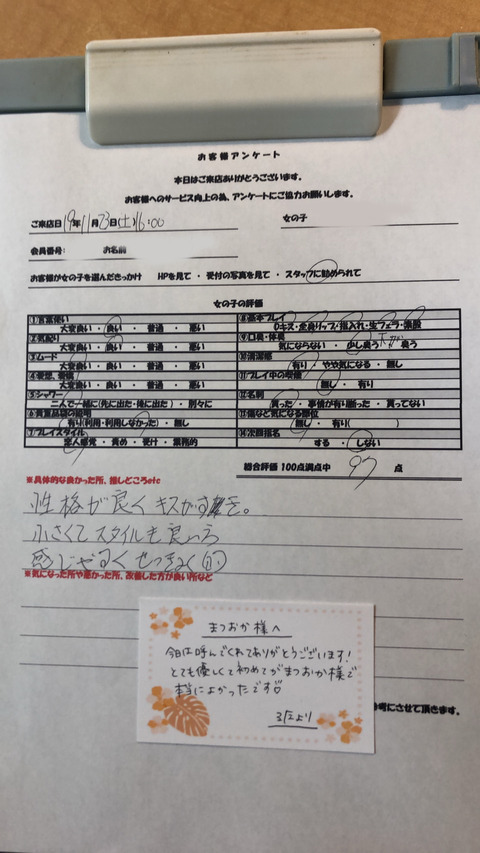 お客様アンケート
本日はご来店ありがとうございます。
お客様へのサービス向上の為、アンケートにご協力お願いします。
ご来店日 19年11月23日(土)16:00 女の子
会員番号: お名前
お客様が女の子を選んだきっかけ HPを見て ・ 受付の写真を見て ・ スタッフに勧められて
女の子の評価
①言葉使い
大変良い ・ 良い ・ 普通 ・ 悪い
②気配り
大変良い ・ 良い ・ 普通 ・ 悪い
③ムード
大変良い ・ 良い ・ 普通 ・ 悪い
大変良い ・ 良い ・ 普通 ・ 悪い
⑤シャワー
二人で一緒に(先に出た・後に出た) ・ 別々に
⑥貴重品袋の説明
有り(利用・利用しなかった) ・ 無し
⑦プレイスタイル
恋人感覚 ・ 責め ・ 受け ・ 業務的
⑧基本プレイ
Dキス・全身リップ・指入れ・生フェラ・素股
⑨口臭・体臭
気にならない ・ 少し臭う ・ 臭う
⑩清潔感
有り ・ やや気になる ・ 無し
⑪プレイ中の喫煙
無し ・ 有り
⑫名刺
貰った ・ 事情が有り断った ・ 貰ってない
⑬傷など気になる部位
無し ・ 有り( )
⑭次回指名
する ・ しない
総合評価 100点満点中 97 点
※具体的な良かった所、推しどころetc
性格が良く キスがすき。
小さくてスタイルも良いし
感じやすくせっきょく的
※気になった所や悪かった所、改善した方が良い所など
まつおか様へ
今日は呼んでくれてありがとうございます!
とても優しくて初めてがまつおか様で
本当によかったです♡
より
考にさせて頂きます。